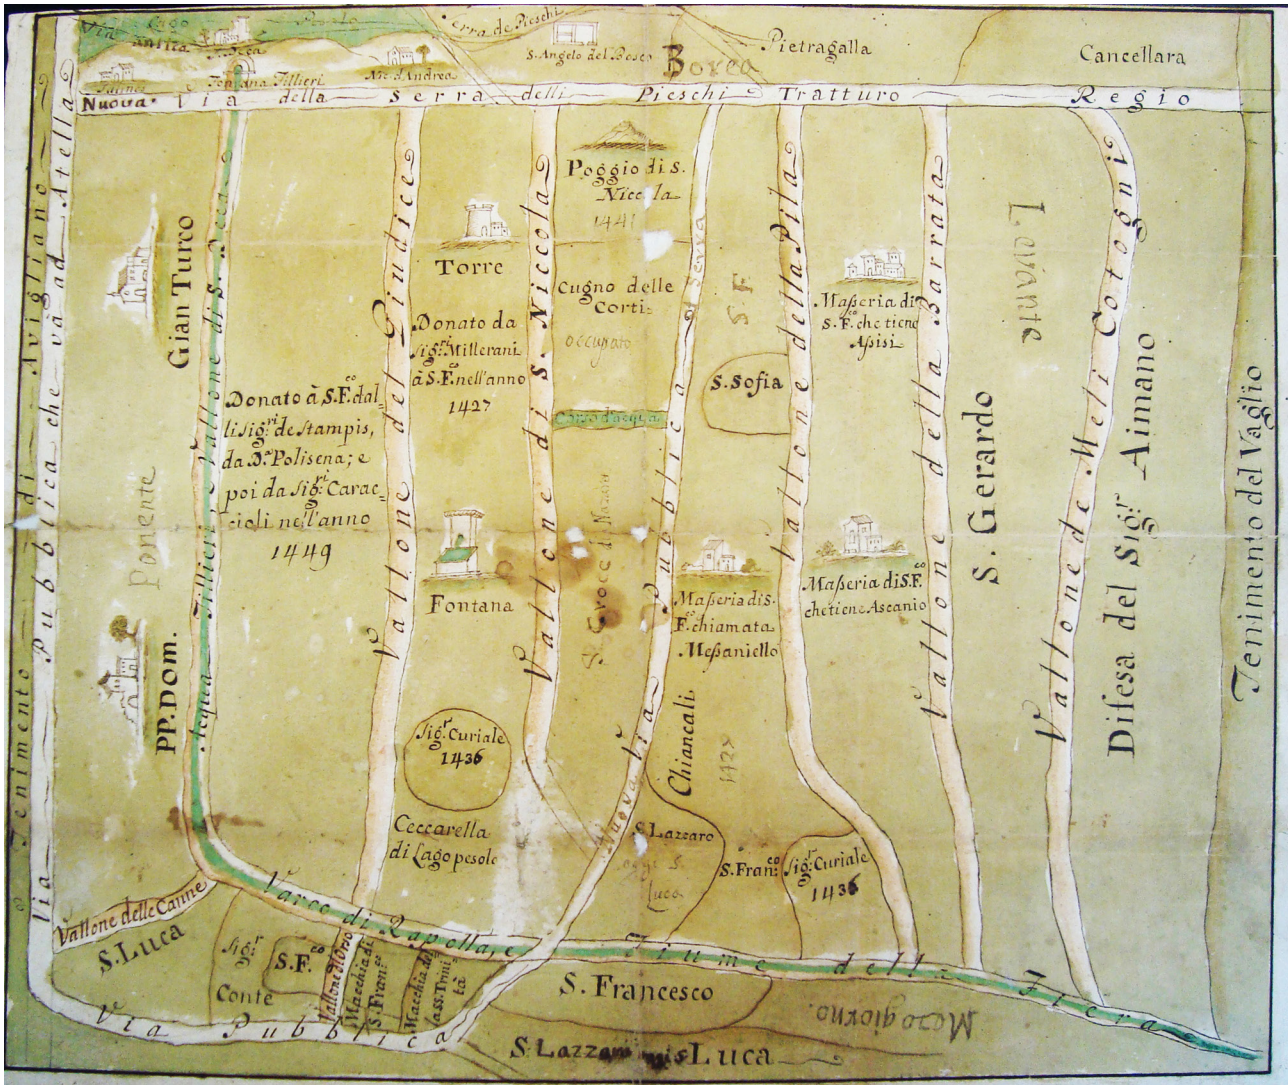 Via Antica
Lago Pesole
Serra de Pieschi
S. Angelo del Bosco
Borea
Pietragalla
Cancellara
Fontana Tillieri
Nic. d'Andrea
Nuova Via della Serra delli Pieschi Tratturo Regio
Tenimento di Avigliano
Via Pubblica che và ad Atella
Gian Turco
Ponente
PP. Dom.
Acqua Tillieri, e Vallone di S.
Donato à S.F.co dal=
li Sig.ri de Stampis,
da D.a Polisena; e
poi da Sig.ri Carac=
cioli nell'anno
1449
Vallone del Giudice
Torre
Donato da
Sig.ri Millerani
à S.F.co nell'anno
1427
Fontana
Sig.r Curiale
1436
Ceccarella
di Lagopesole
Vallone di S. Niccola
Poggio di S.
Niccola
1441
Cugno delle
Corti
occupato
Corso d'acqua
S. Croce di
Nuova Via Pubblica
S. F.
S. Sofia
Masseria di S.
F.co chiamata
Messaniello
Chiancali
1427
S. Lazzaro
oggi S.
Luca
S. Fran.co
Sig.r Curiale
1436
Vallone della Pila
Masseria di
S. F.co che tiene
Assisi
Masseria di S.F.co
che tiene Ascanio
Vallone della Barrata
Levante
S. Gerardo
Vallone de Meli Cotogni
Difesa del Sig.r Aimano
Tenimento del Vaglio
Vallone delle Canne
S. Luca
Varco di Rapolla, e Fiume della Fiera
Sig.r
Conte
S. F.co
Vallone dell'Orso
Macchia di
S. Fran.co
Macchia del
la SS. Trini
tà
S. Francesco
Mezogiorno
Via Pubblica
S. Lazzaro
S. Luca